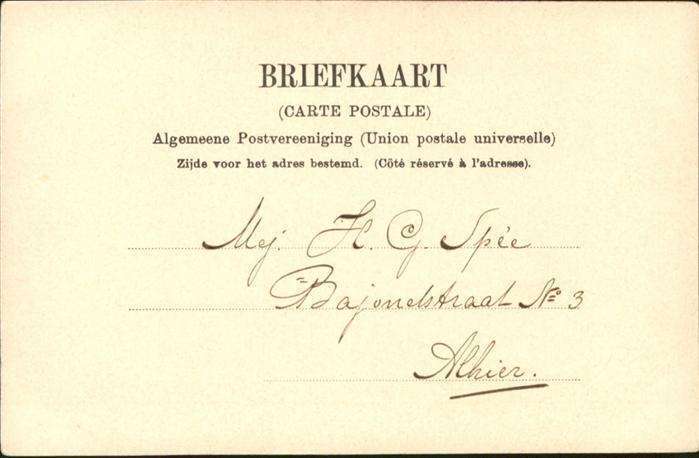 BRIEFKAART
(CARTE POSTALE)
Algemeene Postvereeniging (Union postale universelle)
Zijde voor het adres bestemd. (Côté réservé à l'adresse).
Mej. H. G. Spée
Bajonetstraat No 3
Alhier.